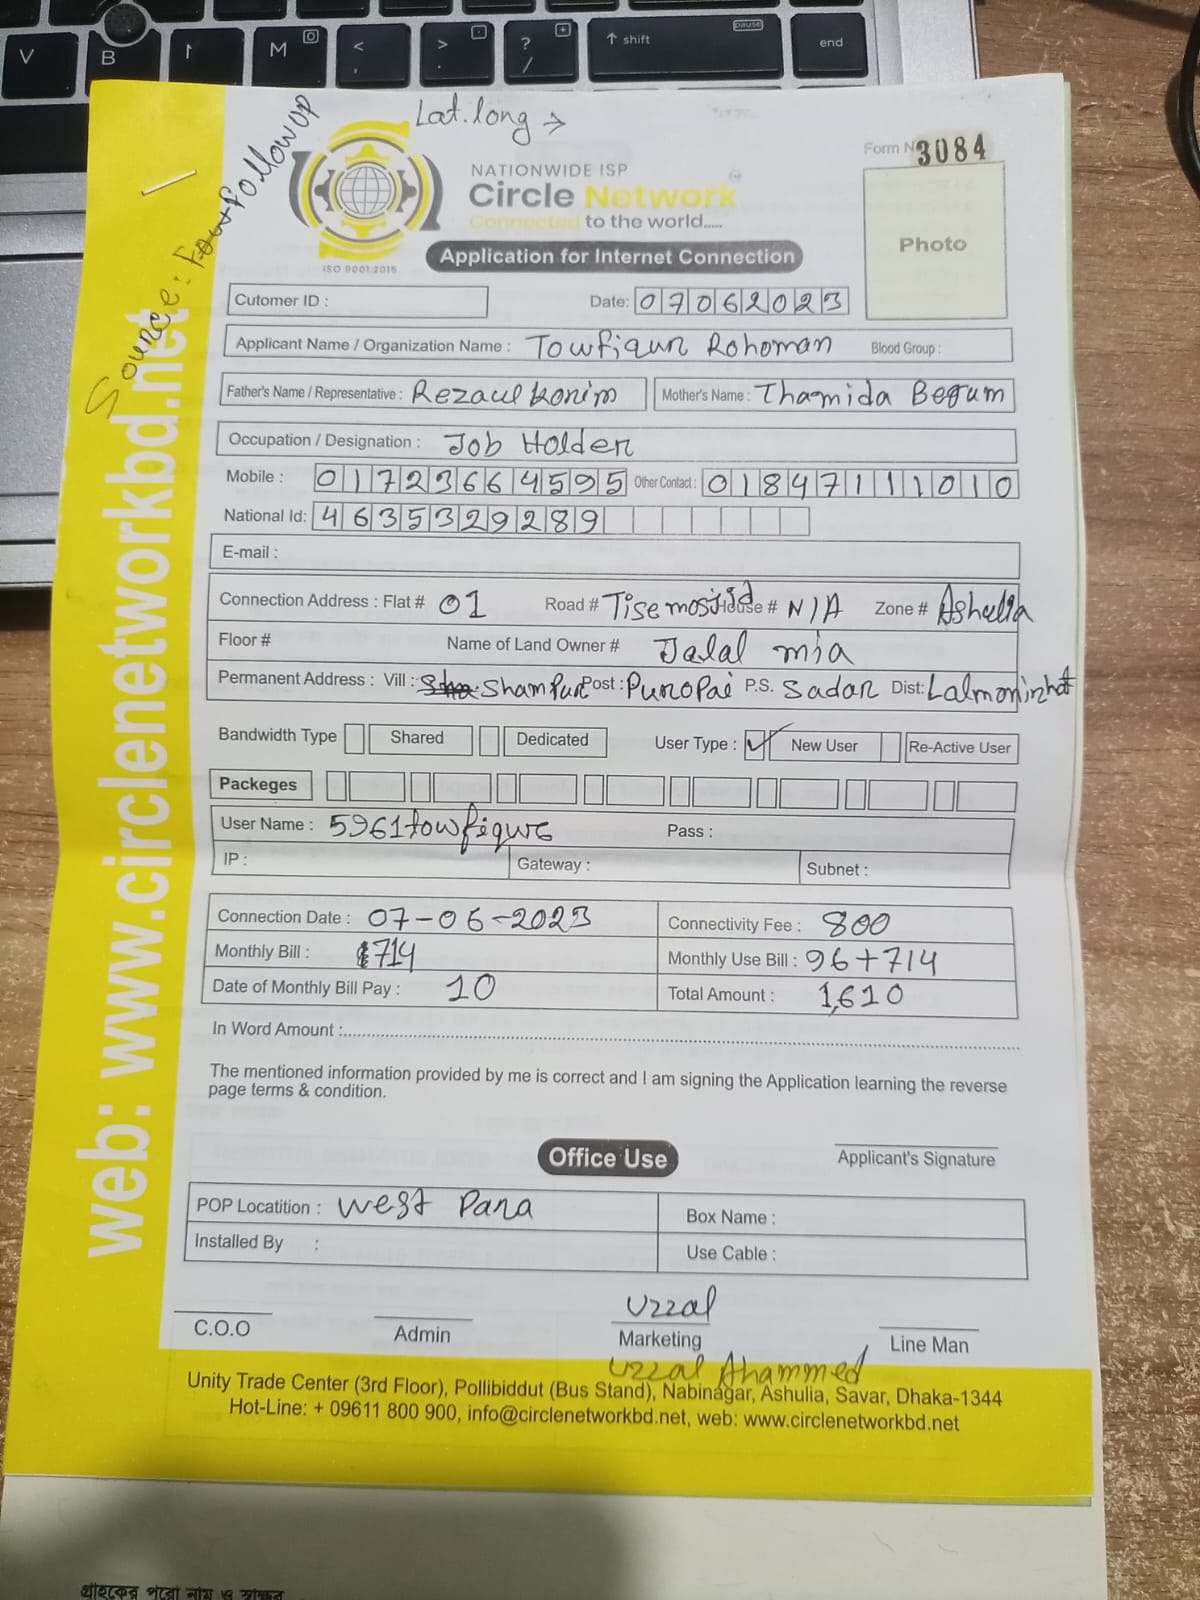 Lat. long →
Source: Follow UP
Form No 3084
NATIONWIDE ISP
Circle Network
Connected to the world.....
ISO 9001:2015
Application for Internet Connection
Photo
Cutomer ID :
Date: 07062023
Applicant Name / Organization Name : Towfiqur Rohoman Blood Group :
Father's Name / Representative : Rezaul Korim Mother's Name : Thamida Begum
Occupation / Designation : Job Holder
Mobile : 01723664595 Other Contact : 01847111010
National Id: 4635329289
E-mail :
Connection Address : Flat # 01 Road # Tisemosjid House # N/A Zone # Ashulia
Floor # Name of Land Owner # Jalal mia
Permanent Address : Vill : ShamPur Post : Puropai P.S. Sadar Dist: Lalmonirhat
Bandwidth Type Shared Dedicated User Type : ✓ New User Re-Active User
Packeges
User Name : 5961towfiqur Pass :
IP : Gateway : Subnet :
Connection Date : 07-06-2023 Connectivity Fee : 800
Monthly Bill : 714 Monthly Use Bill : 96+714
Date of Monthly Bill Pay : 10 Total Amount : 1,610
In Word Amount :
The mentioned information provided by me is correct and I am signing the Application learning the reverse
page terms & condition.
Office Use
Applicant's Signature
POP Locatition : West Para Box Name :
Installed By : Use Cable :
Uzzal
C.O.O Admin Marketing Line Man
Uzzal Ahammed
Unity Trade Center (3rd Floor), Pollibiddut (Bus Stand), Nabinagar, Ashulia, Savar, Dhaka-1344
Hot-Line: + 09611 800 900, info@circlenetworkbd.net, web: www.circlenetworkbd.net
web: www.circlenetworkbd.net
V B M < > ? / shift pause end